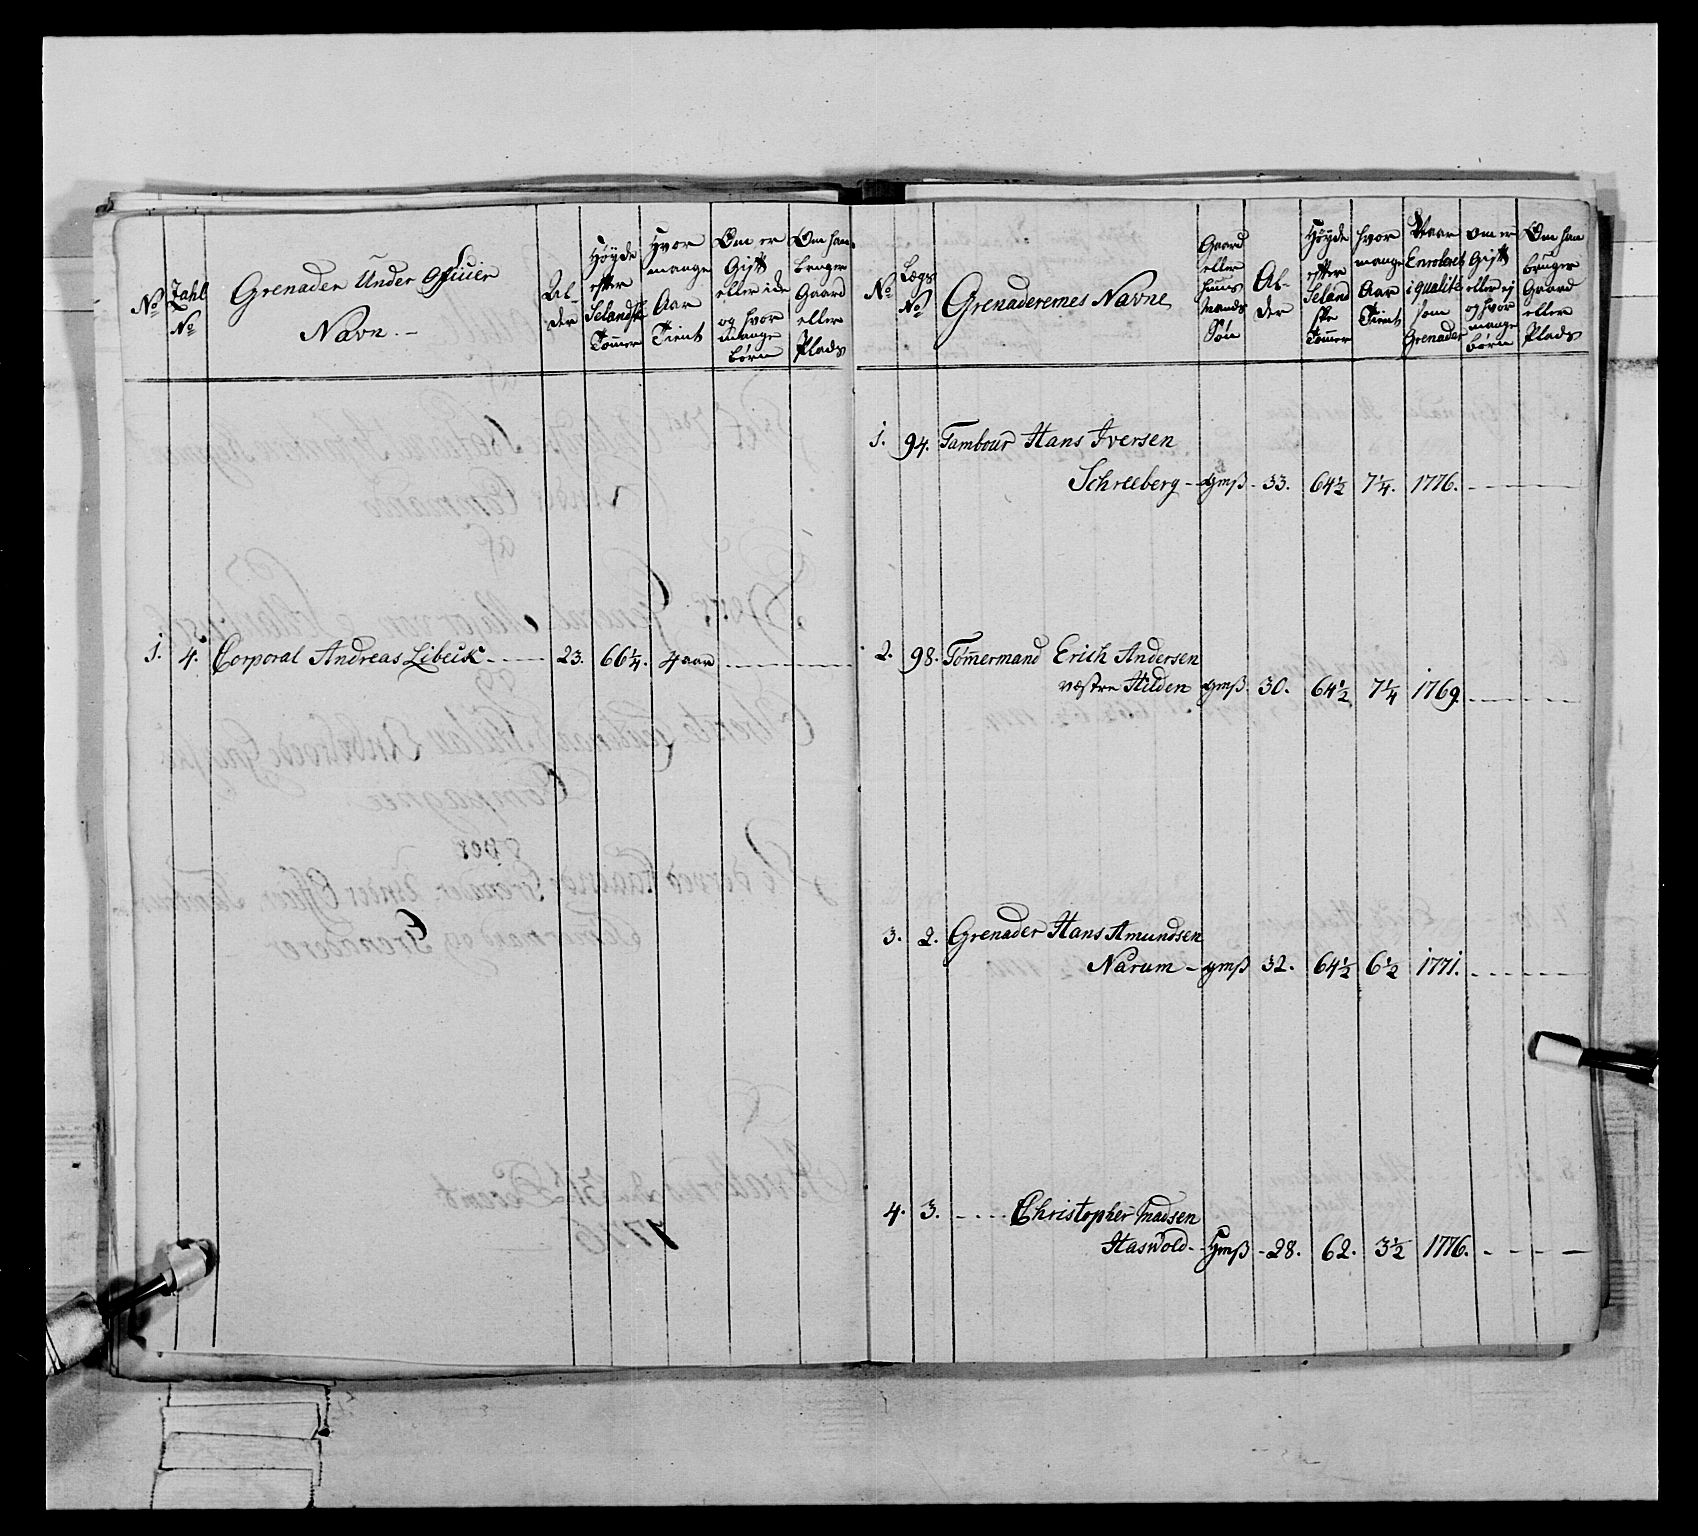 No
Tahl No
Grenader Under Officier
Navn. –
Al-
der
Høyde
efter
Selandsk
Tom̃er
Hvor
mange
Aar
Tient
Om er
Gift
eller ide
og hvor
mange
børn
Om han
bruger
Gaard
eller
Plads
1. 4. Corporal Andreas Libeck 23. 66¼. 4 aar
No
Lægs
No
Grenaderernes Navne
Gaard
eller
huus
mands
Søn
Al-
der
Høyde
efter
Seland
ske
Tom̃er
hvor
mange
Aar
Tient
Naar
Enrolered
i qualite
som
Grenader
Om er
Gift
eller ej
og hvor
mange
børn
Om han
bruger
Gaard
eller
Plads
1. 94. Tambour Hans Iversen
Schreeberg – gmß – 33. 64½ 7¼. 1776.
2. 98. Tom̃ermand Erich Andersen
væstre Hilden gmß. 30. 64½ 7¼ 1769.
3. 2. Grenader Hans Amundsen
Narum – gmß 32. 64½ 6½ 1771.
4. 3. Christopher Madsen
Haswold – Hmß – 28. 62. 3½ 1776.